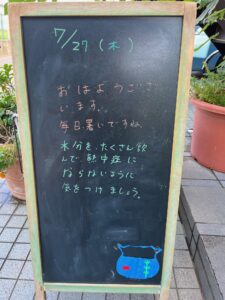 7/27(木)
おはようござ
います。
毎日暑いですね
水分をたくさん飲
んで、熱中症に
ならないように
気をつけましょう。